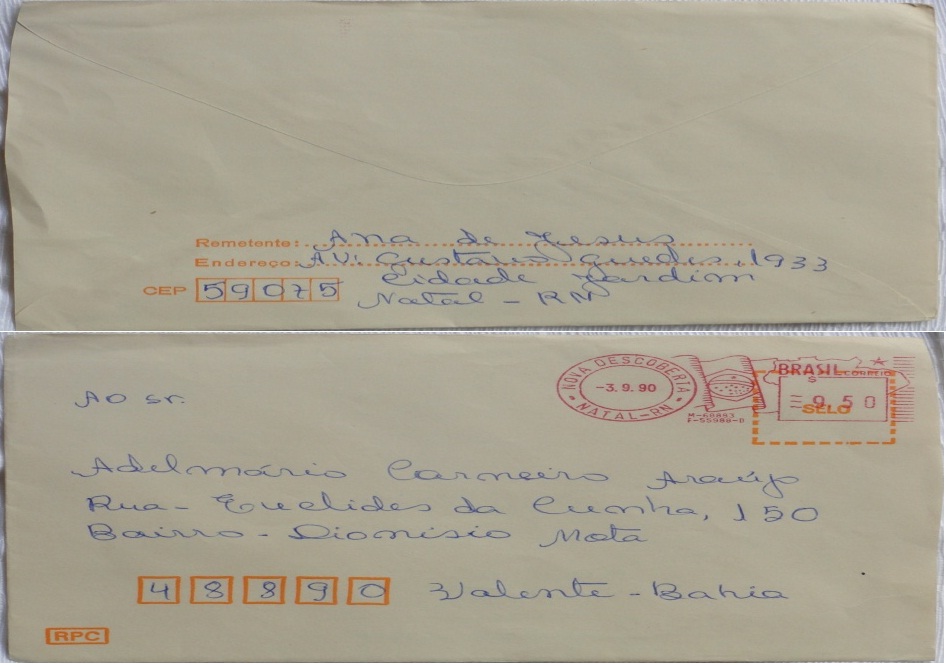 Remetente: Ana de Jesus
Endereço: AV: Gustavo Guedes, 1933
Cidade Jardim
CEP 59075
Natal - RN
NOVA DESCOBERTA
-3.9.90
NATAL-RN
BRASIL
CORREIO
$
9,50
SELO
AO Sr.
Adelmário Carneiro Araújo
Rua - Euclides da Cunha, 150
Bairro - Dionísio Mota
48890 Valente - Bahia
RPC